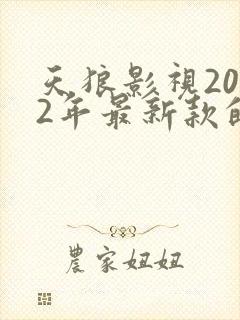 天狼影視20
2年最新款的
農家妞妞